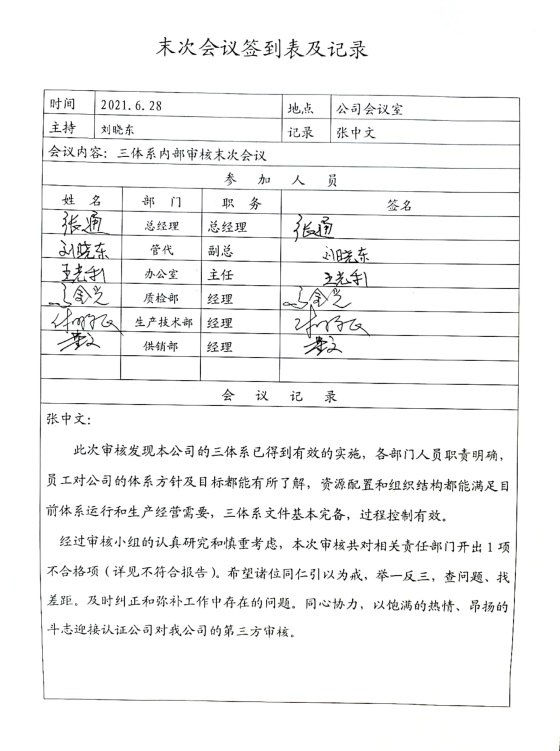 末次会议签到表及记录
时间 2021.6.28 地点 公司会议室
主持 刘晓东 记录 张中文
会议内容：三体系内部审核末次会议
参加人员
姓名 部门 职务 签名
张通 总经理 总经理 张通
刘晓东 管代 副总 刘晓东
王光利 办公室 主任 王光利
质检部 经理
生产技术部 经理
供销部 经理
会议记录
张中文：
此次审核发现本公司的三体系已得到有效的实施，各部门人员职责明确，
员工对公司的体系方针及目标都能有所了解，资源配置和组织结构都能满足目
前体系运行和生产经营需要，三体系文件基本完备，过程控制有效。
经过审核小组的认真研究和慎重考虑，本次审核共对相关责任部门开出1项
不合格项（详见不符合报告）。希望诸位同仁引以为戒，举一反三，查问题、找
差距。及时纠正和弥补工作中存在的问题。同心协力，以饱满的热情、昂扬的
斗志迎接认证公司对我公司的第三方审核。